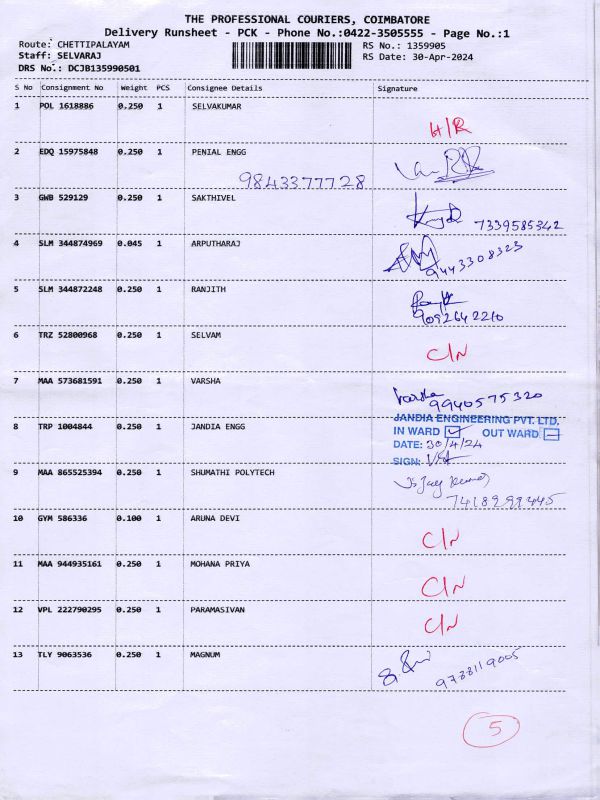 THE PROFESSIONAL COURIERS, COIMBATORE
Delivery Runsheet - PCK - Phone No.:0422-3505555 - Page No.:1
Route: CHETTIPALAYAM RS No.: 1359905
Staff: SELVARAJ RS Date: 30-Apr-2024
DRS No.: DCJB135990501
S No Consignment No Weight PCS Consignee Details Signature
1 POL 1618886 0.250 1 SELVAKUMAR
2 EDQ 15975848 0.250 1 PENIAL ENGG
9843377728
3 GWB 529129 0.250 1 SAKTHIVEL
7339585342
4 SLM 344874969 0.045 1 ARPUTHARAJ
9443308323
5 SLM 344872248 0.250 1 RANJITH
9092642210
6 TRZ 52800968 0.250 1 SELVAM
C/N
7 MAA 573681591 0.250 1 VARSHA
Varsha
9940575320
8 TRP 1004844 0.250 1 JANDIA ENGG
JANDIA ENGINEERING PVT. LTD.
IN WARD OUT WARD
DATE: 30/4/24
SIGN:
9 MAA 865525394 0.250 1 SHUMATHI POLYTECH
10 GYM 586336 0.100 1 ARUNA DEVI
C/N
11 MAA 944935161 0.250 1 MOHANA PRIYA
C/N
12 VPL 222790295 0.250 1 PARAMASIVAN
C/N
13 TLY 9063536 0.250 1 MAGNUM
9788119005
5